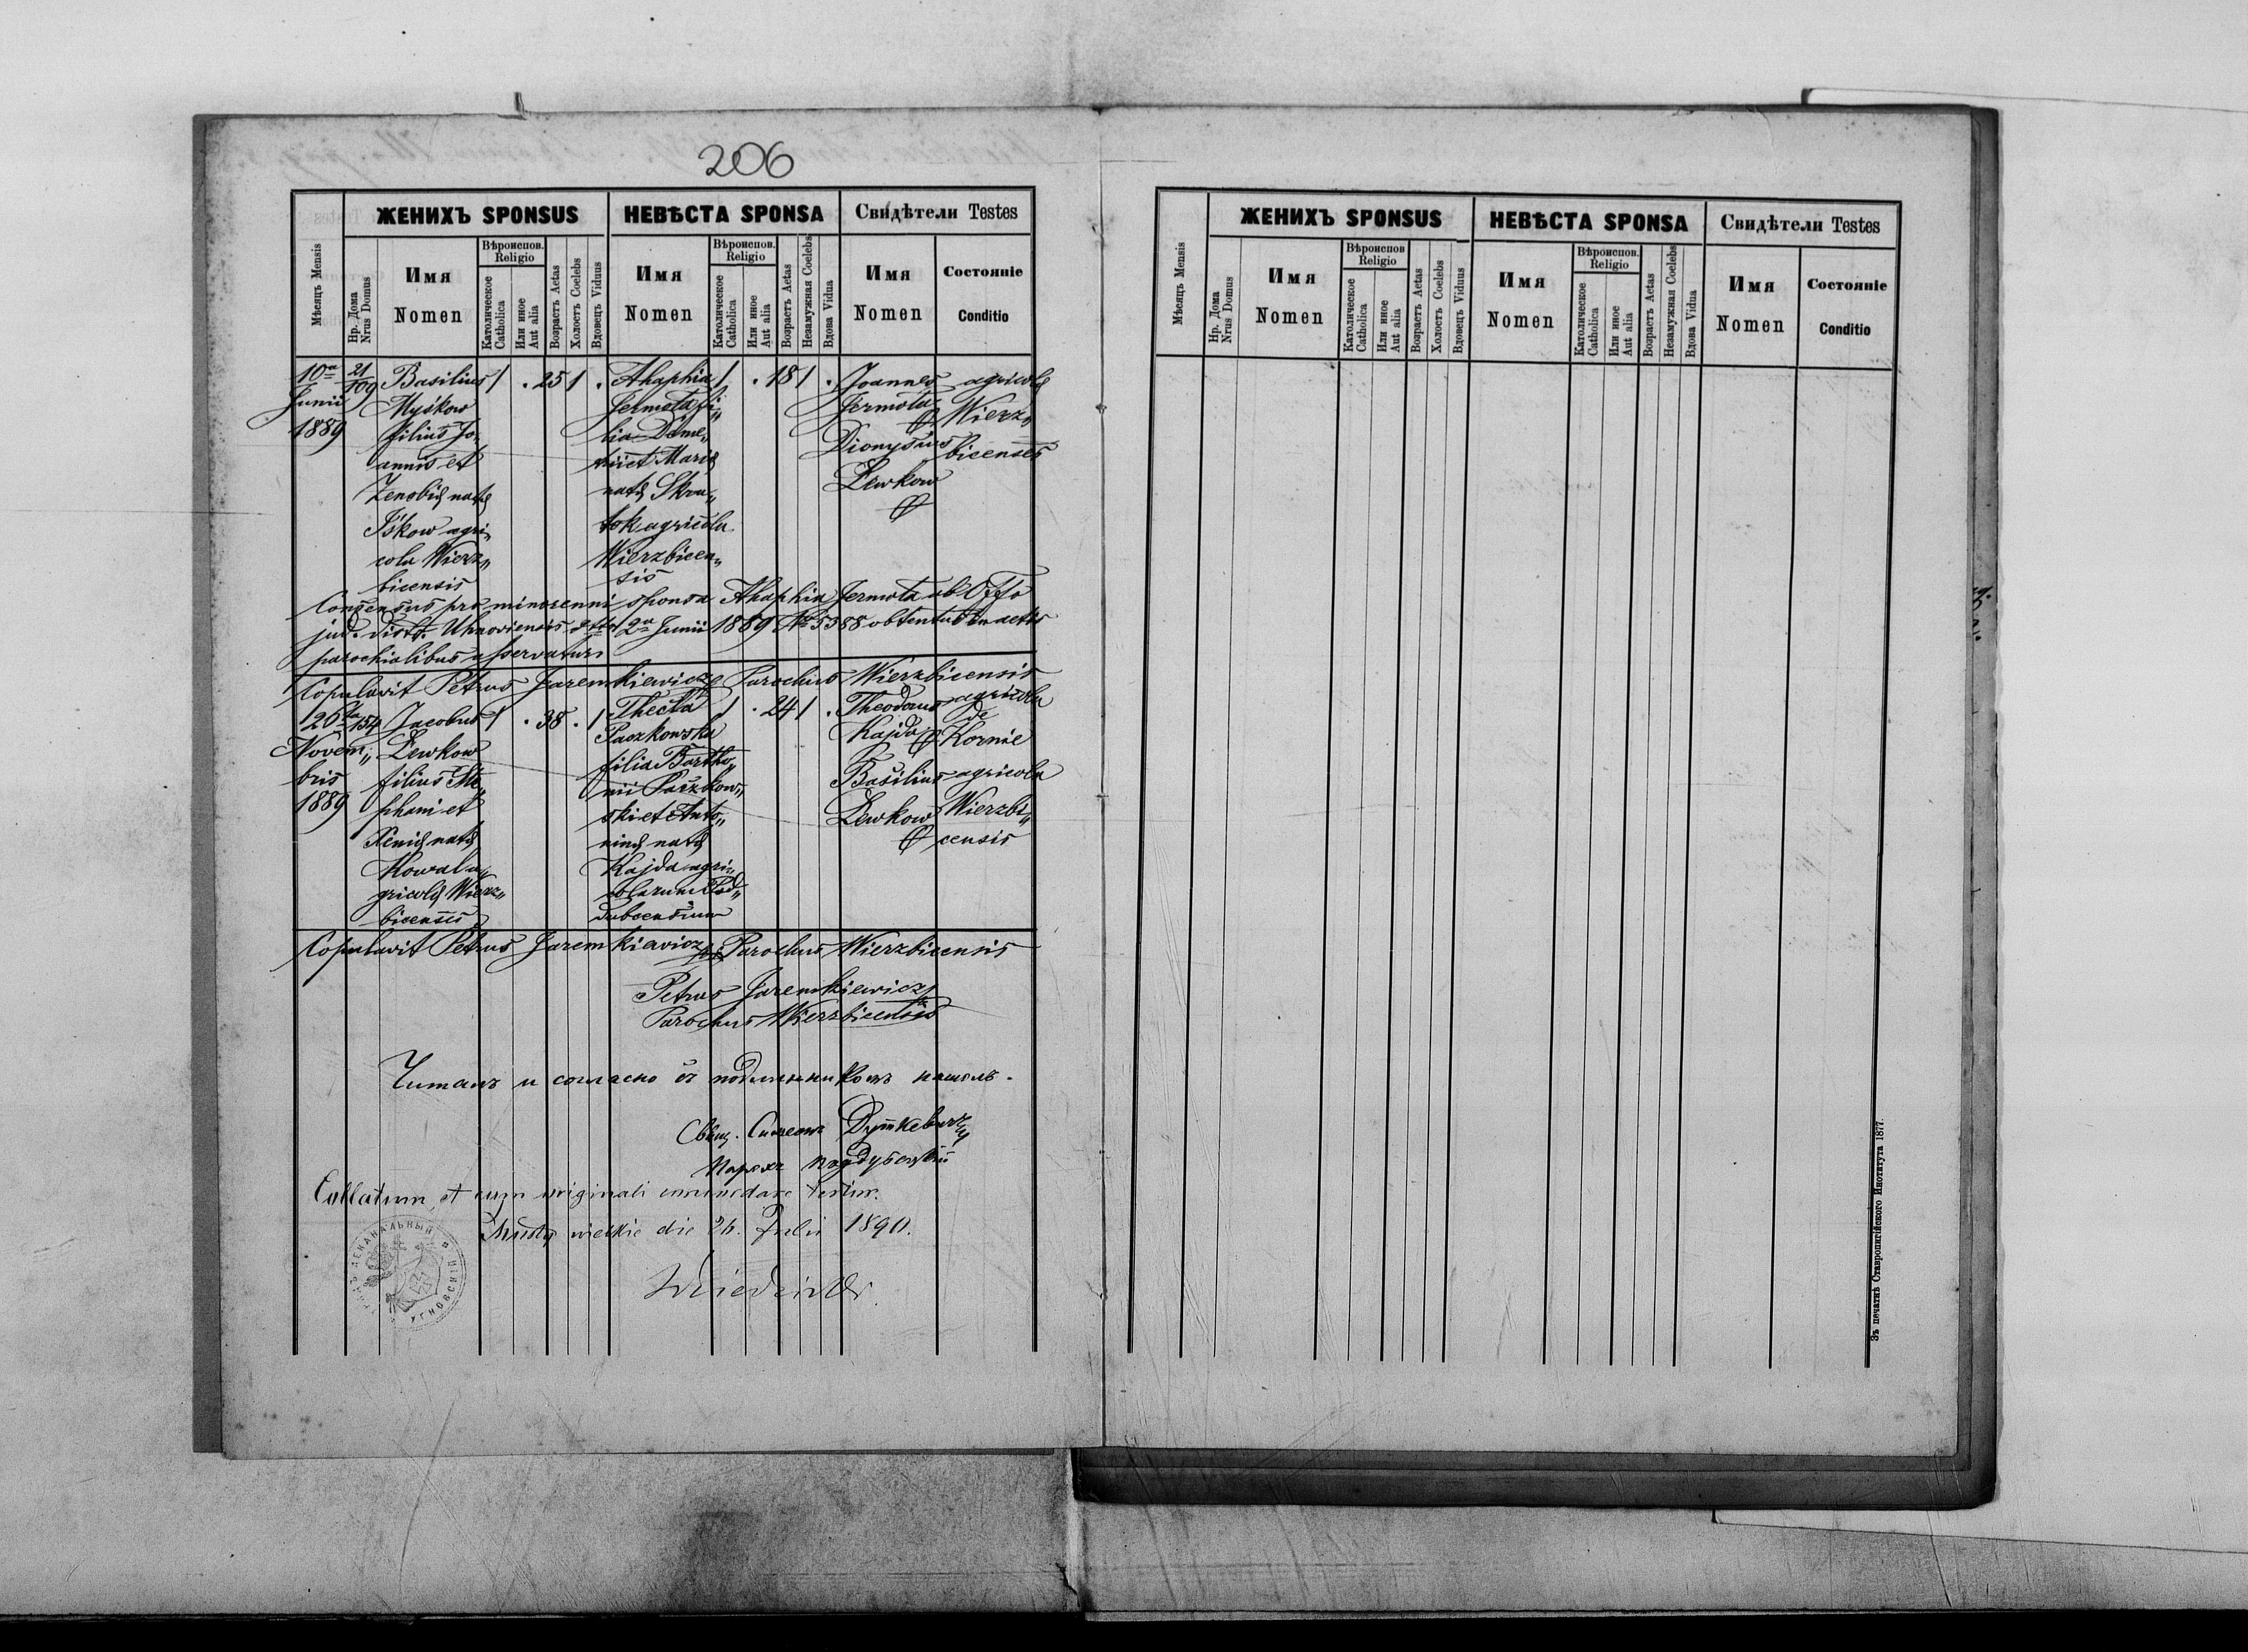 206
ЖЕНИХЪ SPONSUS НЕВѢСТА SPONSA Свидѣтели Testes
Мѣсяцъ Mensis
Нр. Дома Nrus Domus
Имя Nomen
Вѣроиспов. Religio
Католическое Catholica
Или иное Aut alia
Возрастъ Aetas
Холостъ Coelebs
Вдовецъ Viduus
Имя Nomen
Вѣроиспов. Religio
Католическое Catholica
Или иное Aut alia
Возрастъ Aetas
Незамужная Coelebs
Вдова Vidua
Имя Nomen
Состояніе Conditio
10a
Junii
1889
21
109
Basilius
Myśkow
filius Jo-
annis et
Zenobię natę
Iśkow agri„
cola Wierz„
bicensis
1 . 25 1 .
Ahaphia
Jermota fi„
lia Deme„
trii et Marię
natę Skru„
tok agricola
Wierzbicen„
sis
1 . 18 1 .
Joannes
Jermota
Dionysius
Lewkow
agricolę
Wierz„
bicenses
Consensus pro minorenni sponsa Ahaphia Jermota ab Offo
jud. distr. Uhnoviensis ddto 2a Junii 1889 No 5388 obtentus in actis
parochialibus asservatur
Copulavit Petrus Jaremkiewicz Parochus Wierzbicensis
26ta
Novem„
bris
1889
154
Jacobus
Lewkow
filius Ste„
phani et
Xenię natę
Kowal a„
gricolę Wierz„
bicensis
1 . 38 . 1
Thecla
Paczkowska
filia Bartho„
mii Paczkow„
ski et Anto„
ninę natę
Kajda agri„
colarum Pod„
dubcensium
1 . 24 1 .
Theodorus
Kajda
Basilius
Lewkow
agricola
de
Kornie
agricola
Wierzbi„
censis
Copulavit Petrus Jaremkiewicz Parochus Wierzbicensis
Petrus Jaremkiewicz
Parochus Wierzbicensis
Читавъ и согласно съ подлинникомъ нашолъ.
Свящ. Симеонъ Дуткевичъ
Парохъ поддубецкій
Collatum et cum originali
wielkie die 26. Julii 1890.
УГНОВСКІЙ
ЖЕНИХЪ SPONSUS НЕВѢСТА SPONSA Свидѣтели Testes
Мѣсяцъ Mensis
Нр. Дома Nrus Domus
Имя Nomen
Вѣроиспов Religio
Католическое Catholica
Или иное Aut alia
Возрастъ Aetas
Холостъ Coelebs
Вдовецъ Viduus
Имя Nomen
Вѣроиспов. Religio
Католическое Catholica
Или иное Aut alia
Возрастъ Aetas
Незамужная Coelebs
Вдова Vidua
Имя Nomen
Состояніе Conditio
Зъ печатнѣ Ставропигійского Института 1877.